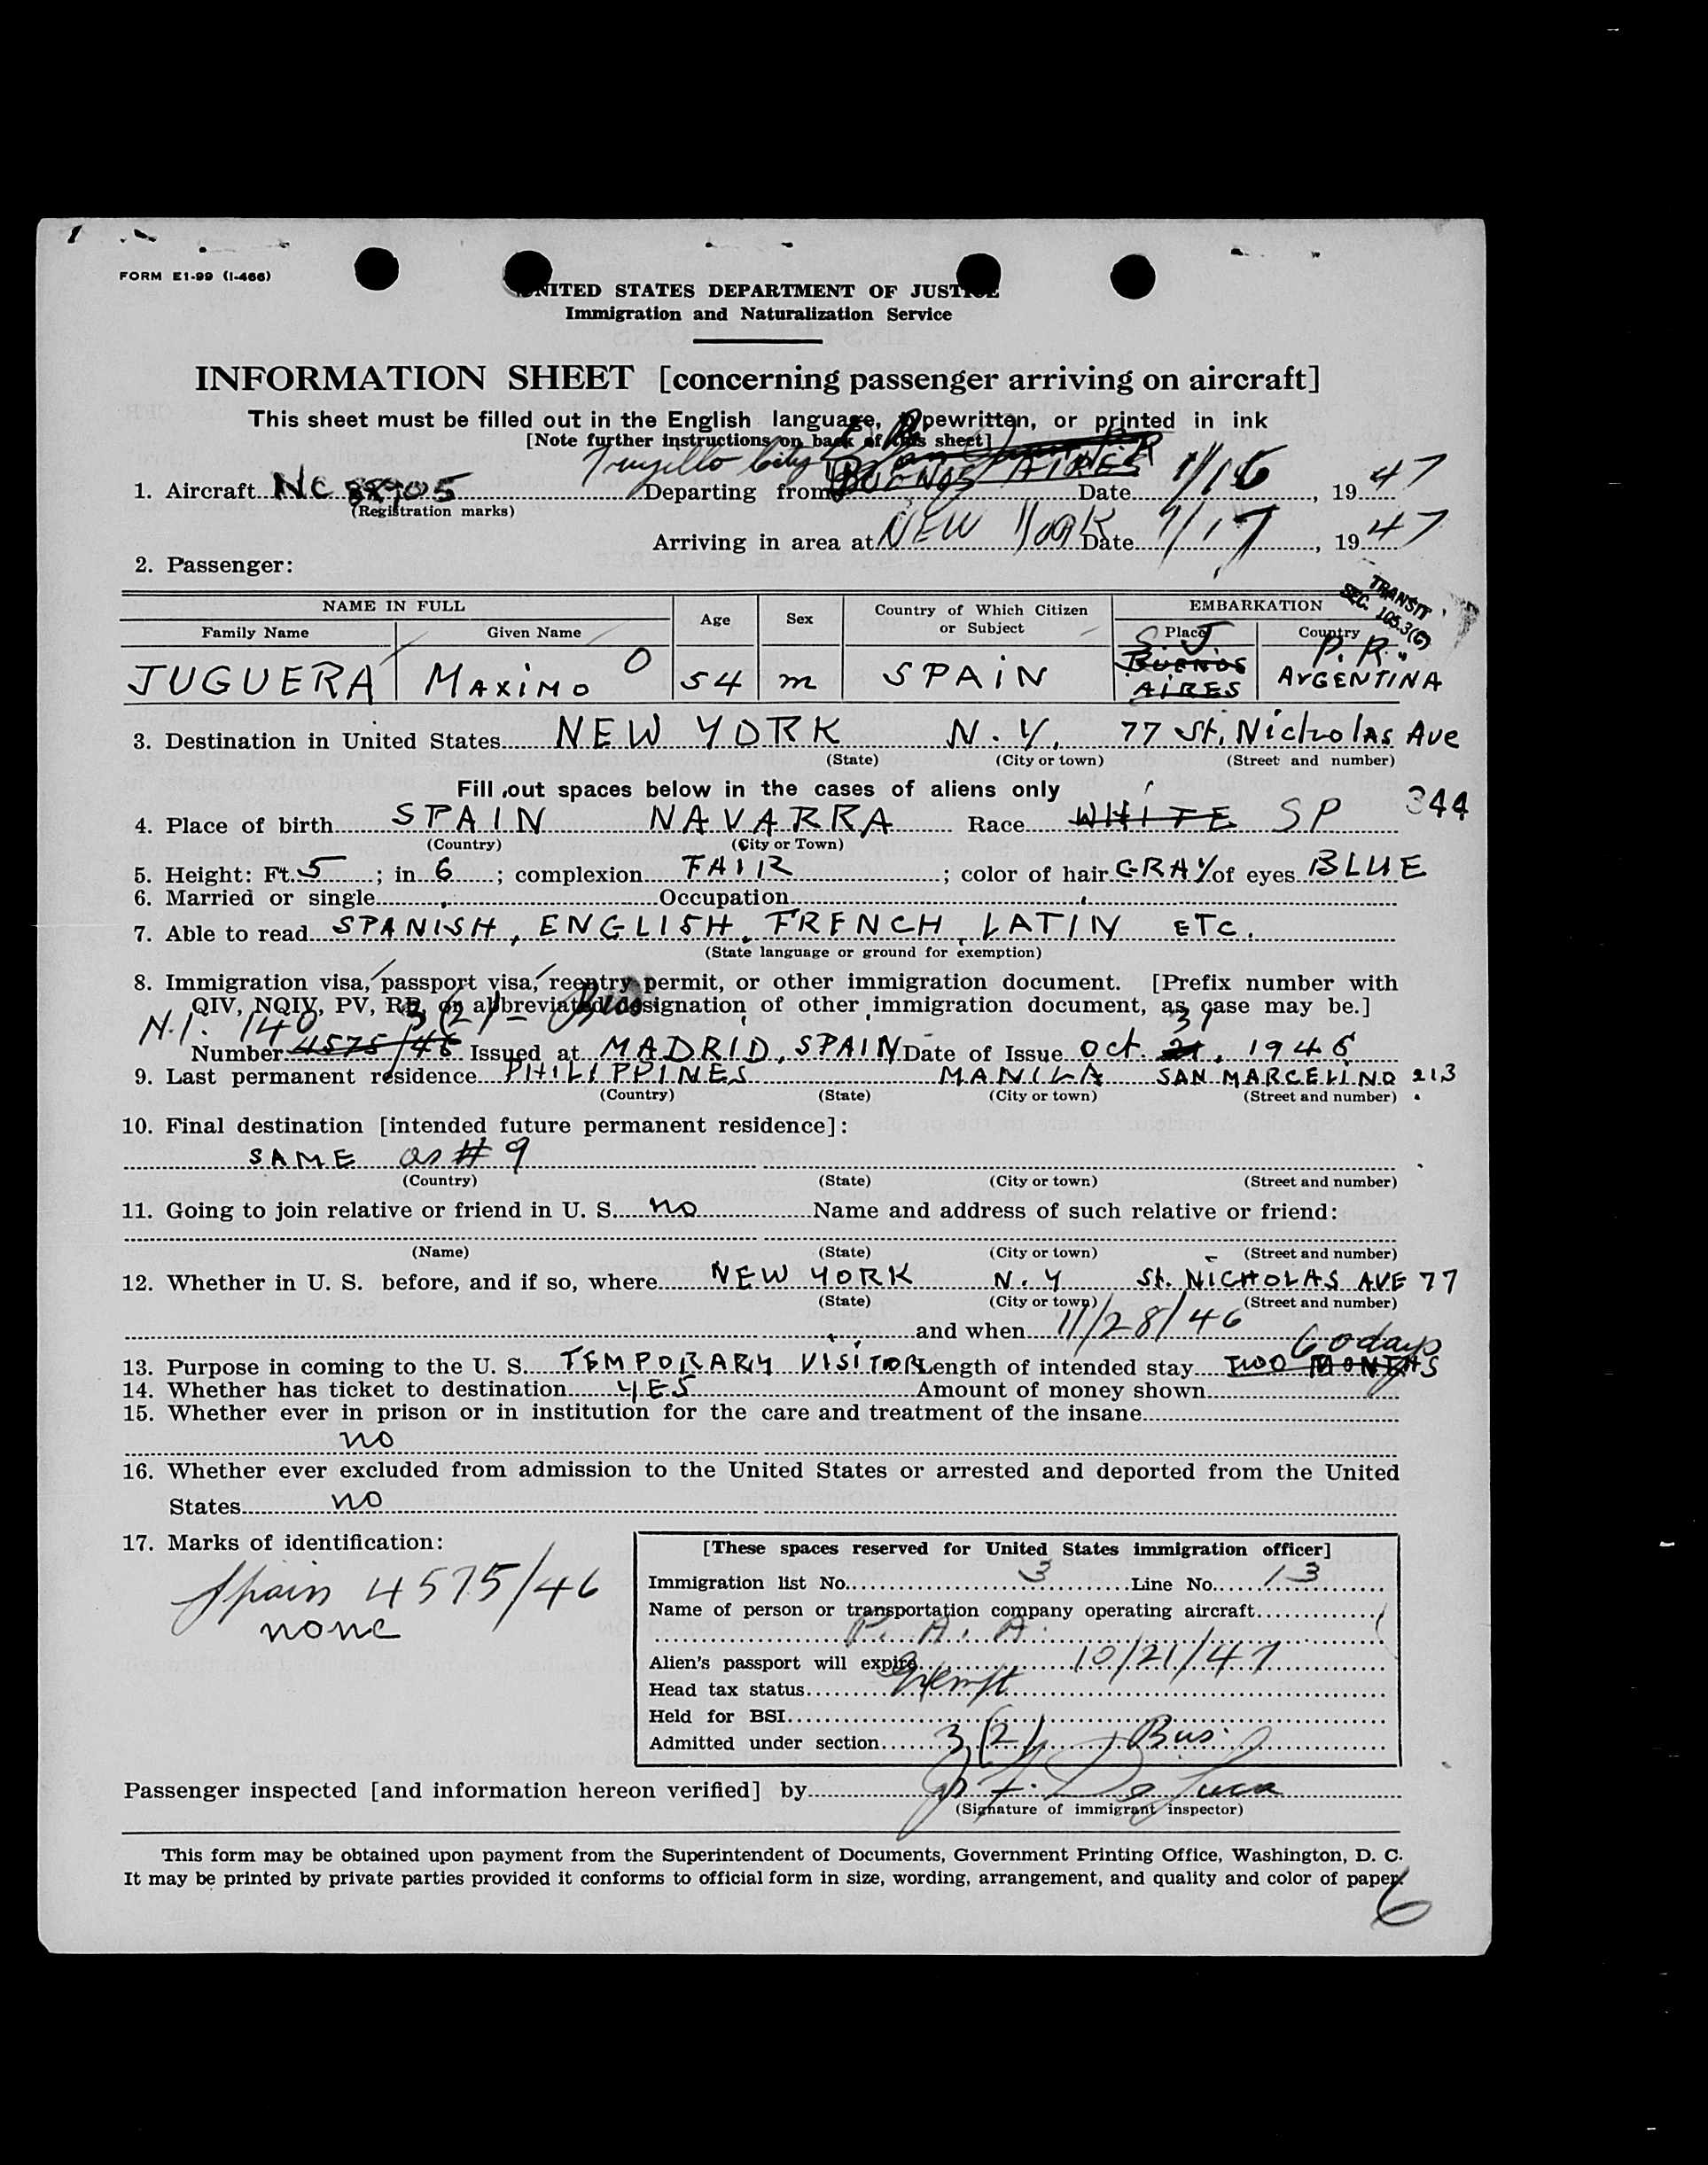 FORM E1-99 (I-466)
UNITED STATES DEPARTMENT OF JUSTICE
Immigration and Naturalization Service
INFORMATION SHEET [concerning passenger arriving on aircraft]
This sheet must be filled out in the English language, typewritten, or printed in ink
[Note further instructions on back of this sheet]
Trujillo City D.R.
1. Aircraft NC 88905 Departing from BUENOS AIRES Date 1/16, 1947
(Registration marks)
Arriving in area at NEW YORK Date 1/17, 1947
2. Passenger:
TRANSIT
SEC. 105.3(G)
NAME IN FULL Age Sex Country of Which Citizen or Subject EMBARKATION
Family Name Given Name Place Country
S.J. P.R.
JUGUERA MAXIMO O 54 m SPAIN BUENOS AIRES ARGENTINA
3. Destination in United States NEW YORK N.Y. 77 St. Nicholas Ave
(State) (City or town) (Street and number)
Fill out spaces below in the cases of aliens only
344
4. Place of birth SPAIN NAVARRA Race WHITE SP
(Country) (City or Town)
5. Height: Ft. 5; in 6; complexion FAIR; color of hair GRAY of eyes BLUE
6. Married or single Occupation
7. Able to read SPANISH, ENGLISH, FRENCH, LATIN ETC.
(State language or ground for exemption)
8. Immigration visa, passport visa, reentry permit, or other immigration document. [Prefix number with
QIV, NQIV, PV, RP, or abbreviated designation of other immigration document, as case may be.]
N.I. 140 3(2) - Bus 31
Number 4575/46 Issued at MADRID, SPAIN Date of Issue Oct. 21, 1946
9. Last permanent residence PHILIPPINES MANILA SAN MARCELINO 213
(Country) (State) (City or town) (Street and number)
10. Final destination [intended future permanent residence]:
SAME as # 9
(Country) (State) (City or town) (Street and number)
11. Going to join relative or friend in U. S. no Name and address of such relative or friend:
(Name) (State) (City or town) (Street and number)
12. Whether in U. S. before, and if so, where NEW YORK N.Y St. NICHOLAS AVE 77
(State) (City or town) (Street and number)
and when 11/28/46
60 days
13. Purpose in coming to the U. S. TEMPORARY VISITOR Length of intended stay TWO MONTHS
14. Whether has ticket to destination YES Amount of money shown
15. Whether ever in prison or in institution for the care and treatment of the insane
no
16. Whether ever excluded from admission to the United States or arrested and deported from the United
States no
17. Marks of identification:
Spain 4575/46
none
[These spaces reserved for United States immigration officer]
Immigration list No. 3 Line No. 13
Name of person or transportation company operating aircraft
P. A. A.
Alien's passport will expire 10/21/47
Head tax status Exempt
Held for BSI
Admitted under section 3(2) Bus.
Passenger inspected [and information hereon verified] by De Luca
(Signature of immigrant inspector)
This form may be obtained upon payment from the Superintendent of Documents, Government Printing Office, Washington, D. C.
It may be printed by private parties provided it conforms to official form in size, wording, arrangement, and quality and color of paper.
6